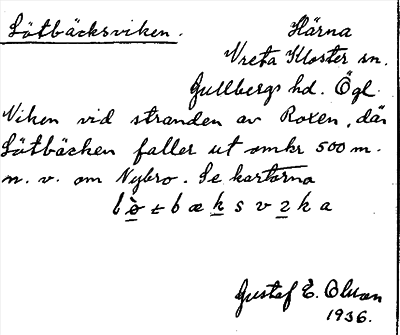 Lötbäcksviken.
Härna
Vreta Kloster sn.
Gullbergs hd. Ögl.
Viken vid stranden av Roxen, där
Lötbäcken faller ut omkr 500 m.
n. v. om Nybro. Se kartorna
Gustaf E. Olsson
1936.